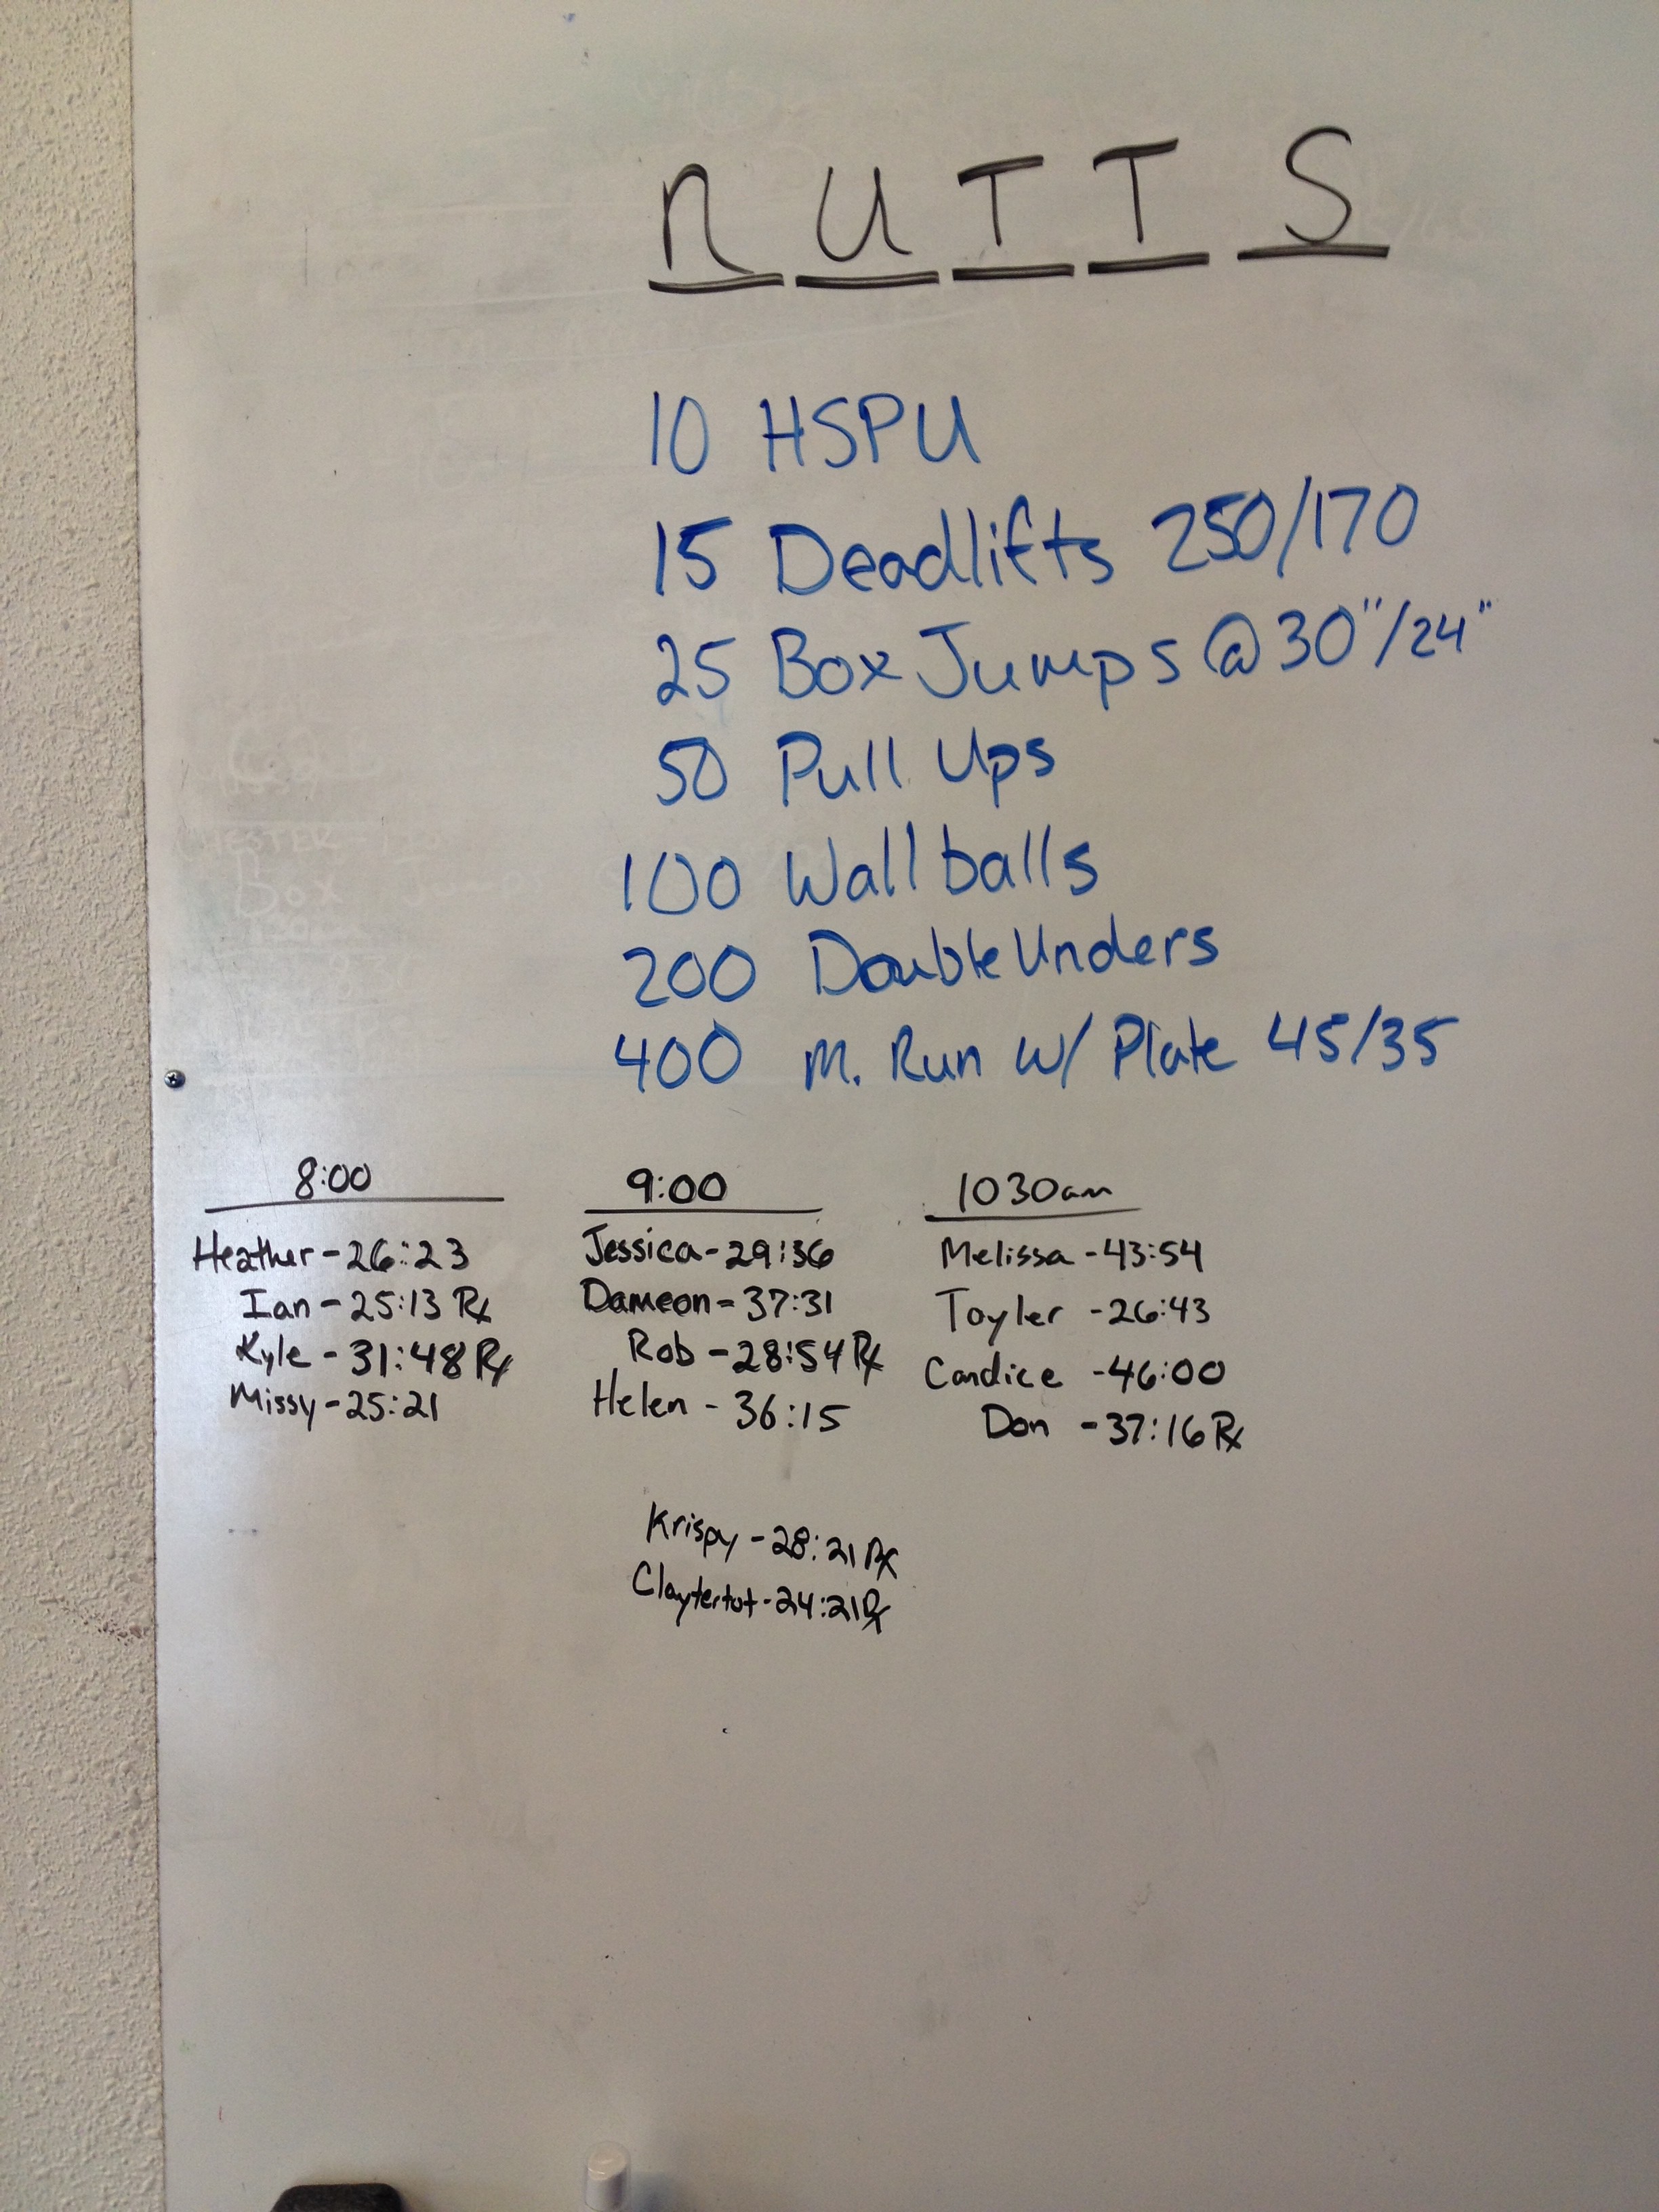 NUTTS
10 HSPU
15 Deadlifts 250/170
25 Box Jumps @ 30"/24"
50 Pull Ups
100 Wall balls
200 Double Unders
400 M. Run w/ Plate 45/35
8:00
Heather - 26:23
Ian - 25:13 Rx
Kyle - 31:48 Rx
Missy - 25:21
9:00
Jessica - 29:36
Dameon - 37:31
Rob - 28:54 Rx
Helen - 36:15
Krispy - 28:21 Rx
Claytertot - 24:21 Rx
1030am
Melissa - 43:54
Tayler - 26:43
Candice - 46:00
Don - 37:16 Rx